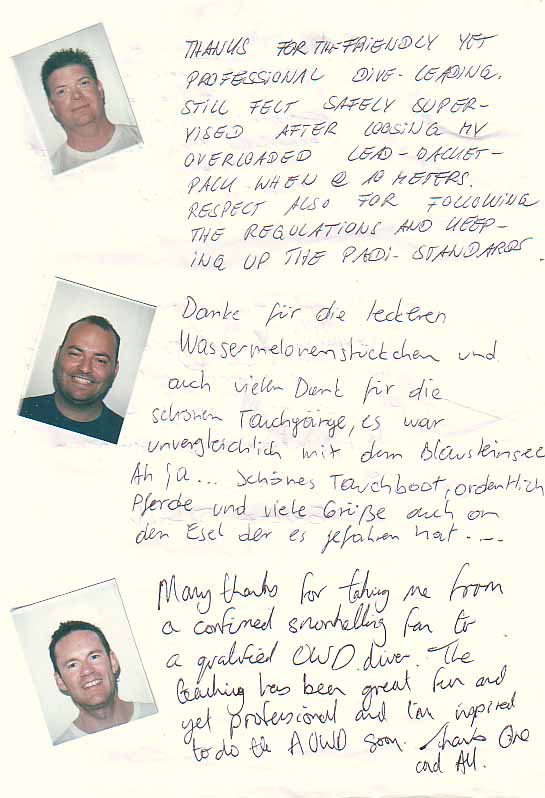 THANKS FOR THE FRIENDLY YET
PROFESSIONAL DIVE-LEADING.
STILL FELT SAFELY SUPER-
VISED AFTER LOOSING MY
OVERLOADED LEAD-BACKET-
PACK WHEN @ 10 METERS.
RESPECT ALSO FOR FOLLOWING
THE REGULATIONS AND KEEP-
ING UP THE PADI-STANDARDS.
Danke für die leckeren
Wassermelonenstückchen und
auch vielen Dank für die
schönen Tauchgänge, es war
unvergleichlich mit dem Blausteinsee
Ah ja... schönes Tauchboot, ordentlich
Pferde und viele Grüße auch an
den Esel der es gefahren hat....
Many thanks for taking me from
a confirmed snorkelling fan to
a qualified OWD diver. The
teaching has been great fun and
yet professional and I'm inspired
to do the AOWD soon. Thanks One
and All.